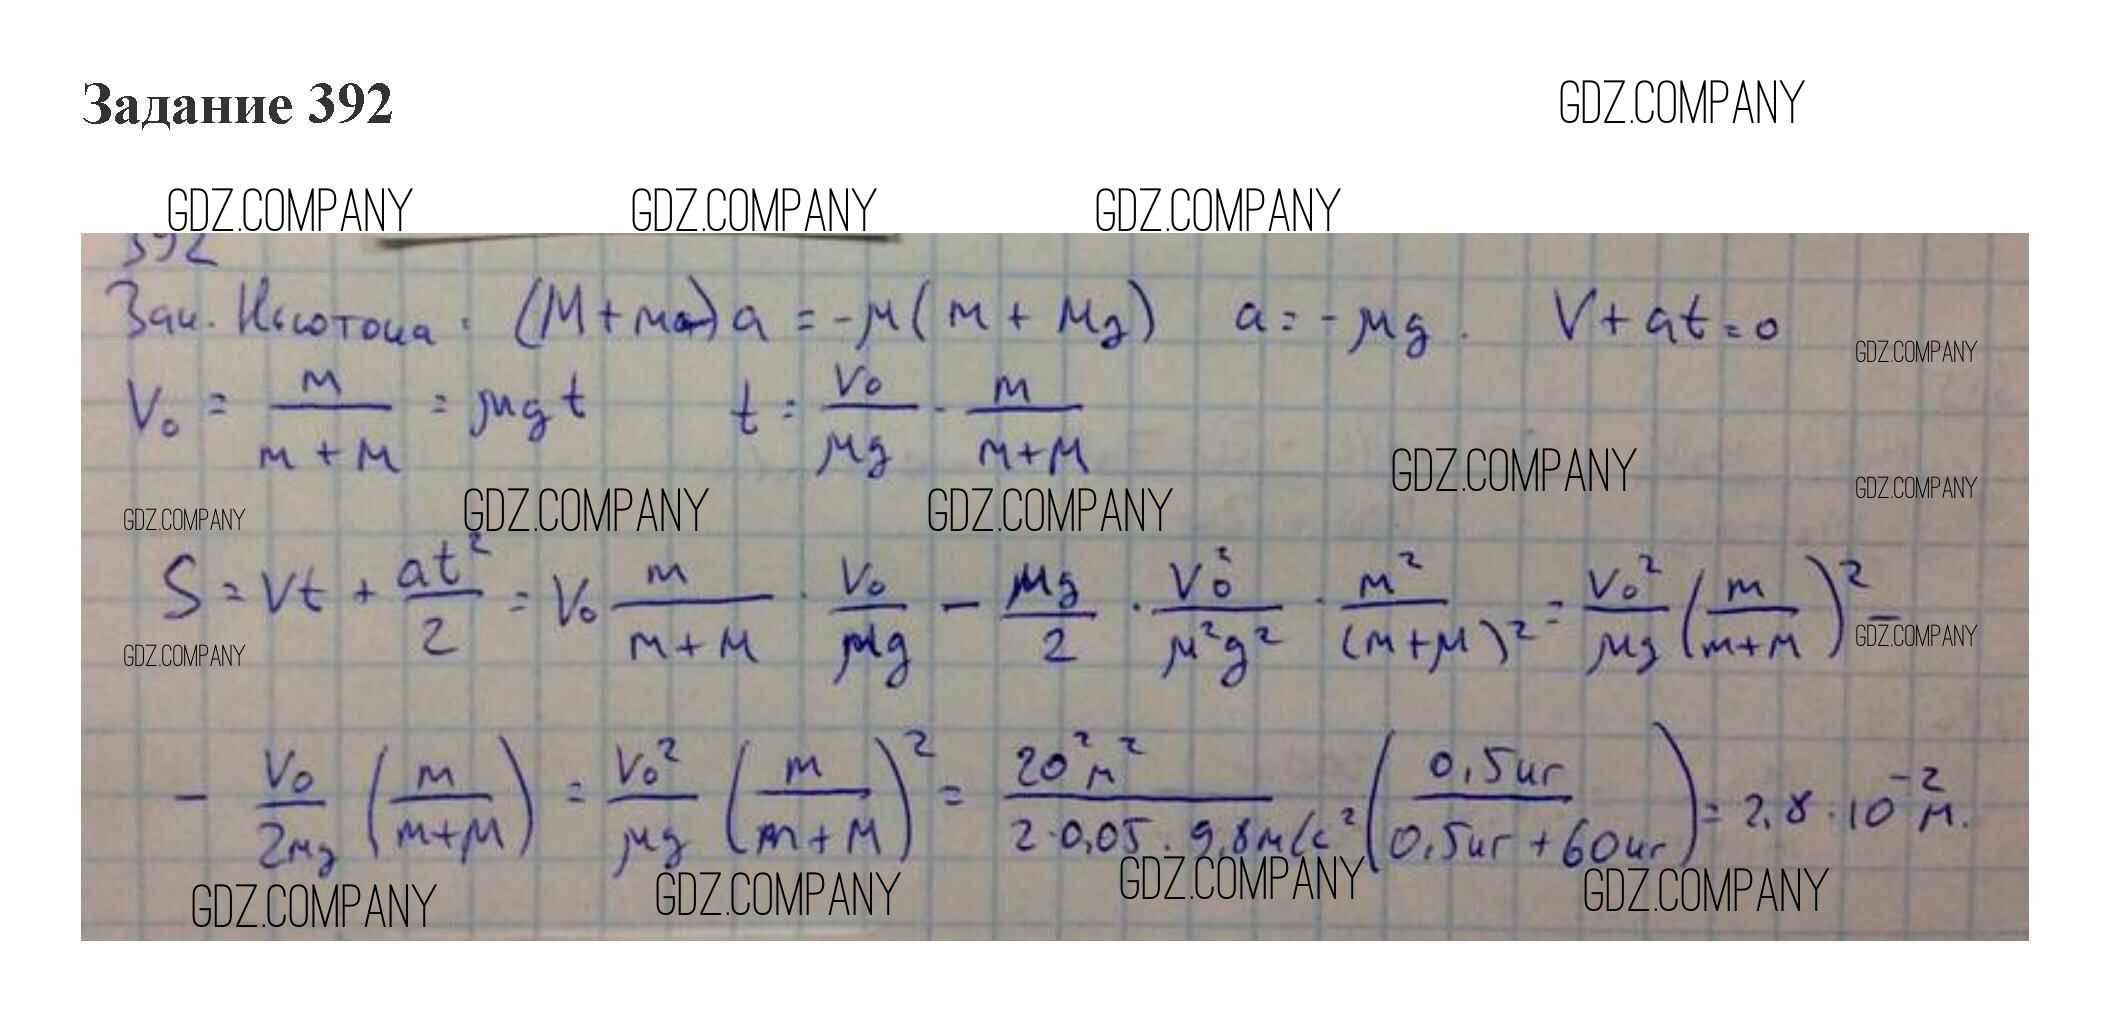 Задание 392
GDZ.COMPANY
GDZ.COMPANY GDZ.COMPANY GDZ.COMPANY
392
Зак. Ньютона: (M + m) a = - μ ( m + Mg ) a = - μg. V + at = 0
GDZ.COMPANY
V₀ = m/(m + M) = μgt t = V₀/μg · m/(m+M)
GDZ.COMPANY
GDZ.COMPANY
GDZ.COMPANY GDZ.COMPANY GDZ.COMPANY
S = Vt + at²/2 = V₀ m/(m + M) · V₀/μg - μg/2 · V₀²/μ²g² · m²/(m+M)² = V₀²/μg (m/(m+M))² -
GDZ.COMPANY
GDZ.COMPANY
- V₀/2μg (m/(m+M)) = V₀²/μg (m/(m+M))² = 20²м²/2·0,05·9,8м/с² (0,5кг/0,5кг + 60кг) = 2,8·10⁻²м.
GDZ.COMPANY GDZ.COMPANY GDZ.COMPANY GDZ.COMPANY